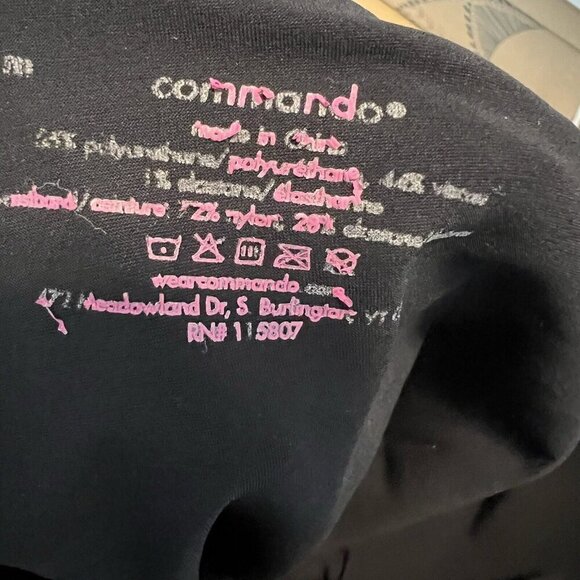 m
commando®
made in China
polyurethane/polyuréthane, 44% viscose
1% elastane/élasthanne
waistband/ceinture: 72% nylon, 28% elastane/
wearcommando.com
Meadowland Dr, S. Burlington, VT
RN# 115807